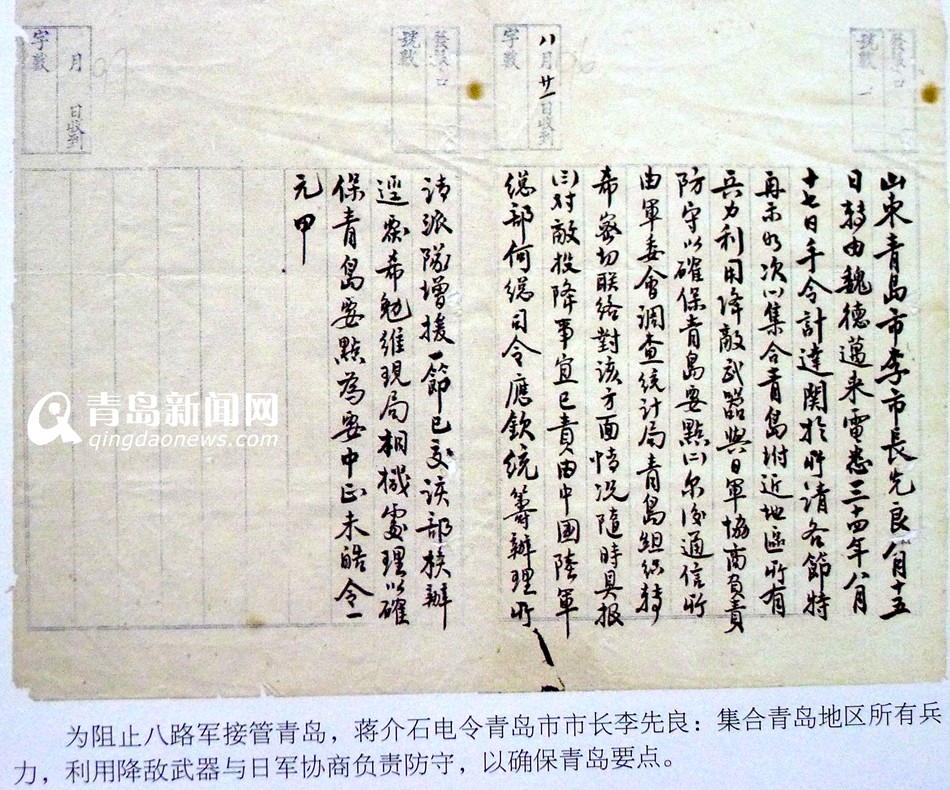 發報人
號數
八月廿一日收到
字數
山東青島市李市長先良八月十五
日轉由魏德邁来電悉三十四年八月
十七日手令計達関於所請各節特
再示如次㈠集合青島附近地區所有
兵力利用降敵武器與日軍協商負責
防守以確保青島要點㈡尔後通信所
由軍委會調查統計局青島組織轉
希密切联絡對該方面情况隨時具报
㈢对敵投降事宜已責由中國陸軍
總部何總司令應欽統籌辦理所
號數
月 日收到
字數
請派隊增援一節已交該部核辦
逕覆希勉維現局相機處理以確
保青島要點為要中正未皓令一
元甲
青岛新闻网
qingdaonews.com
为阻止八路军接管青岛，蒋介石电令青岛市市长李先良：集合青岛地区所有兵
力，利用降敌武器与日军协商负责防守，以确保青岛要点。